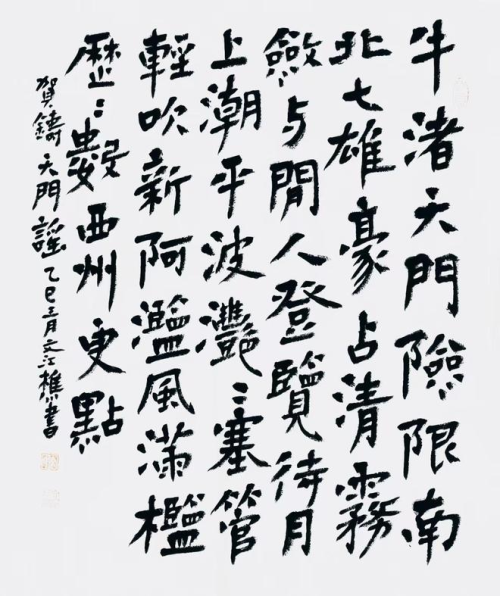 牛渚天門險限南
北七雄豪占清霧
斂与閒人登覽待月
上潮平波灧〻塞管
輕吹新阿濫風滿檻
歷〻數西州更點
賀鑄天門謠乙巳三月文江樵書